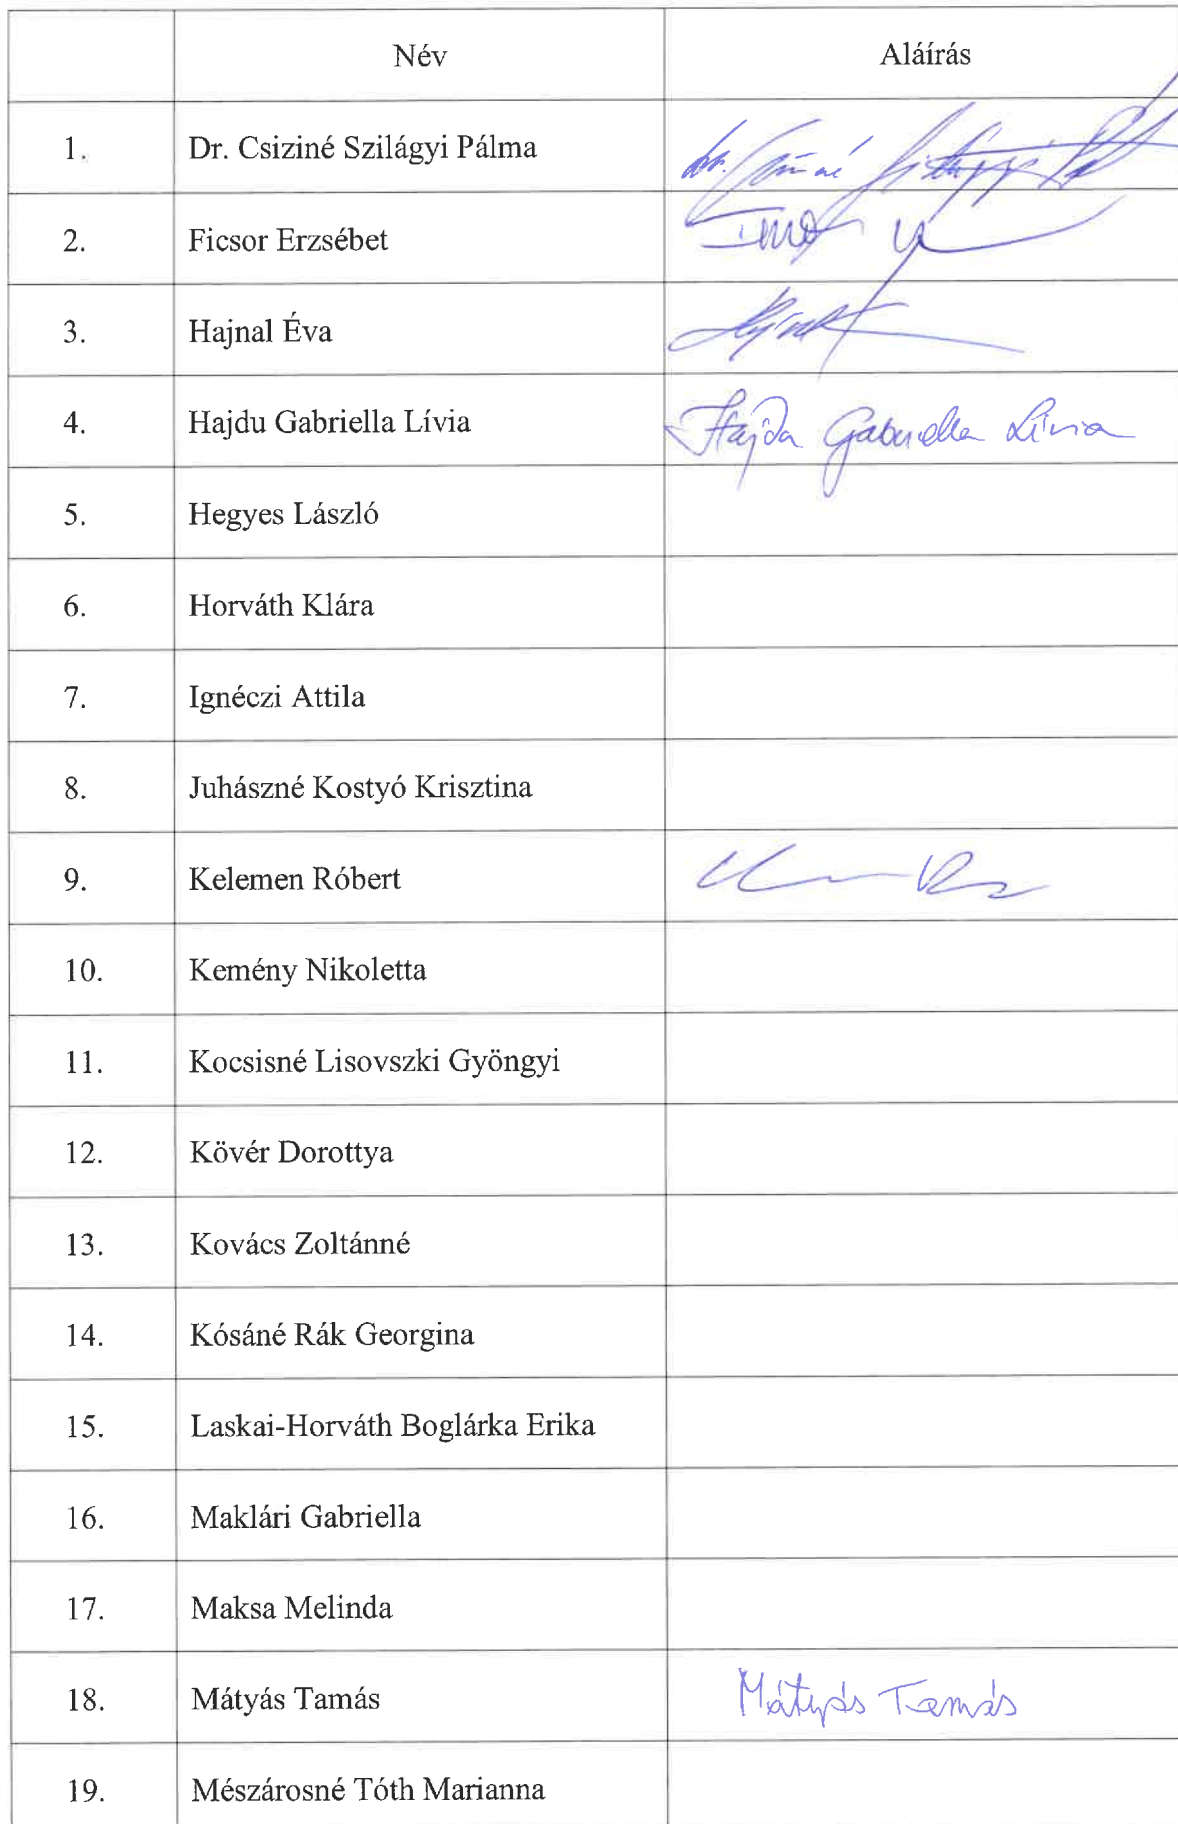 Név Aláírás
1. Dr. Csiziné Szilágyi Pálma
2. Ficsor Erzsébet
3. Hajnal Éva
4. Hajdu Gabriella Lívia Hajdu Gabriella Lívia
5. Hegyes László
6. Horváth Klára
7. Ignéczi Attila
8. Juhászné Kostyó Krisztina
9. Kelemen Róbert
10. Kemény Nikoletta
11. Kocsisné Lisovszki Gyöngyi
12. Kövér Dorottya
13. Kovács Zoltánné
14. Kósáné Rák Georgina
15. Laskai-Horváth Boglárka Erika
16. Maklári Gabriella
17. Maksa Melinda
18. Mátyás Tamás Mátyás Tamás
19. Mészárosné Tóth Marianna